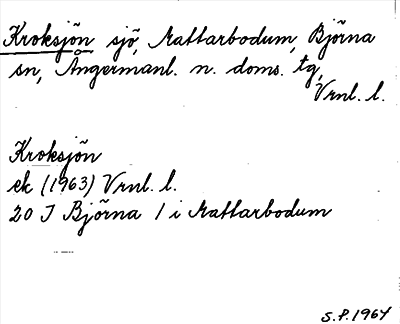 Kroksjön sjö, Mattarbodum, Björna
sn, Ångermanl. n. doms. tg,
Vrnl. l.
Kroksjön
ek (1963) Vrnl. l.
20 J Björna 1 i Mattarbodum
S.P. 1964